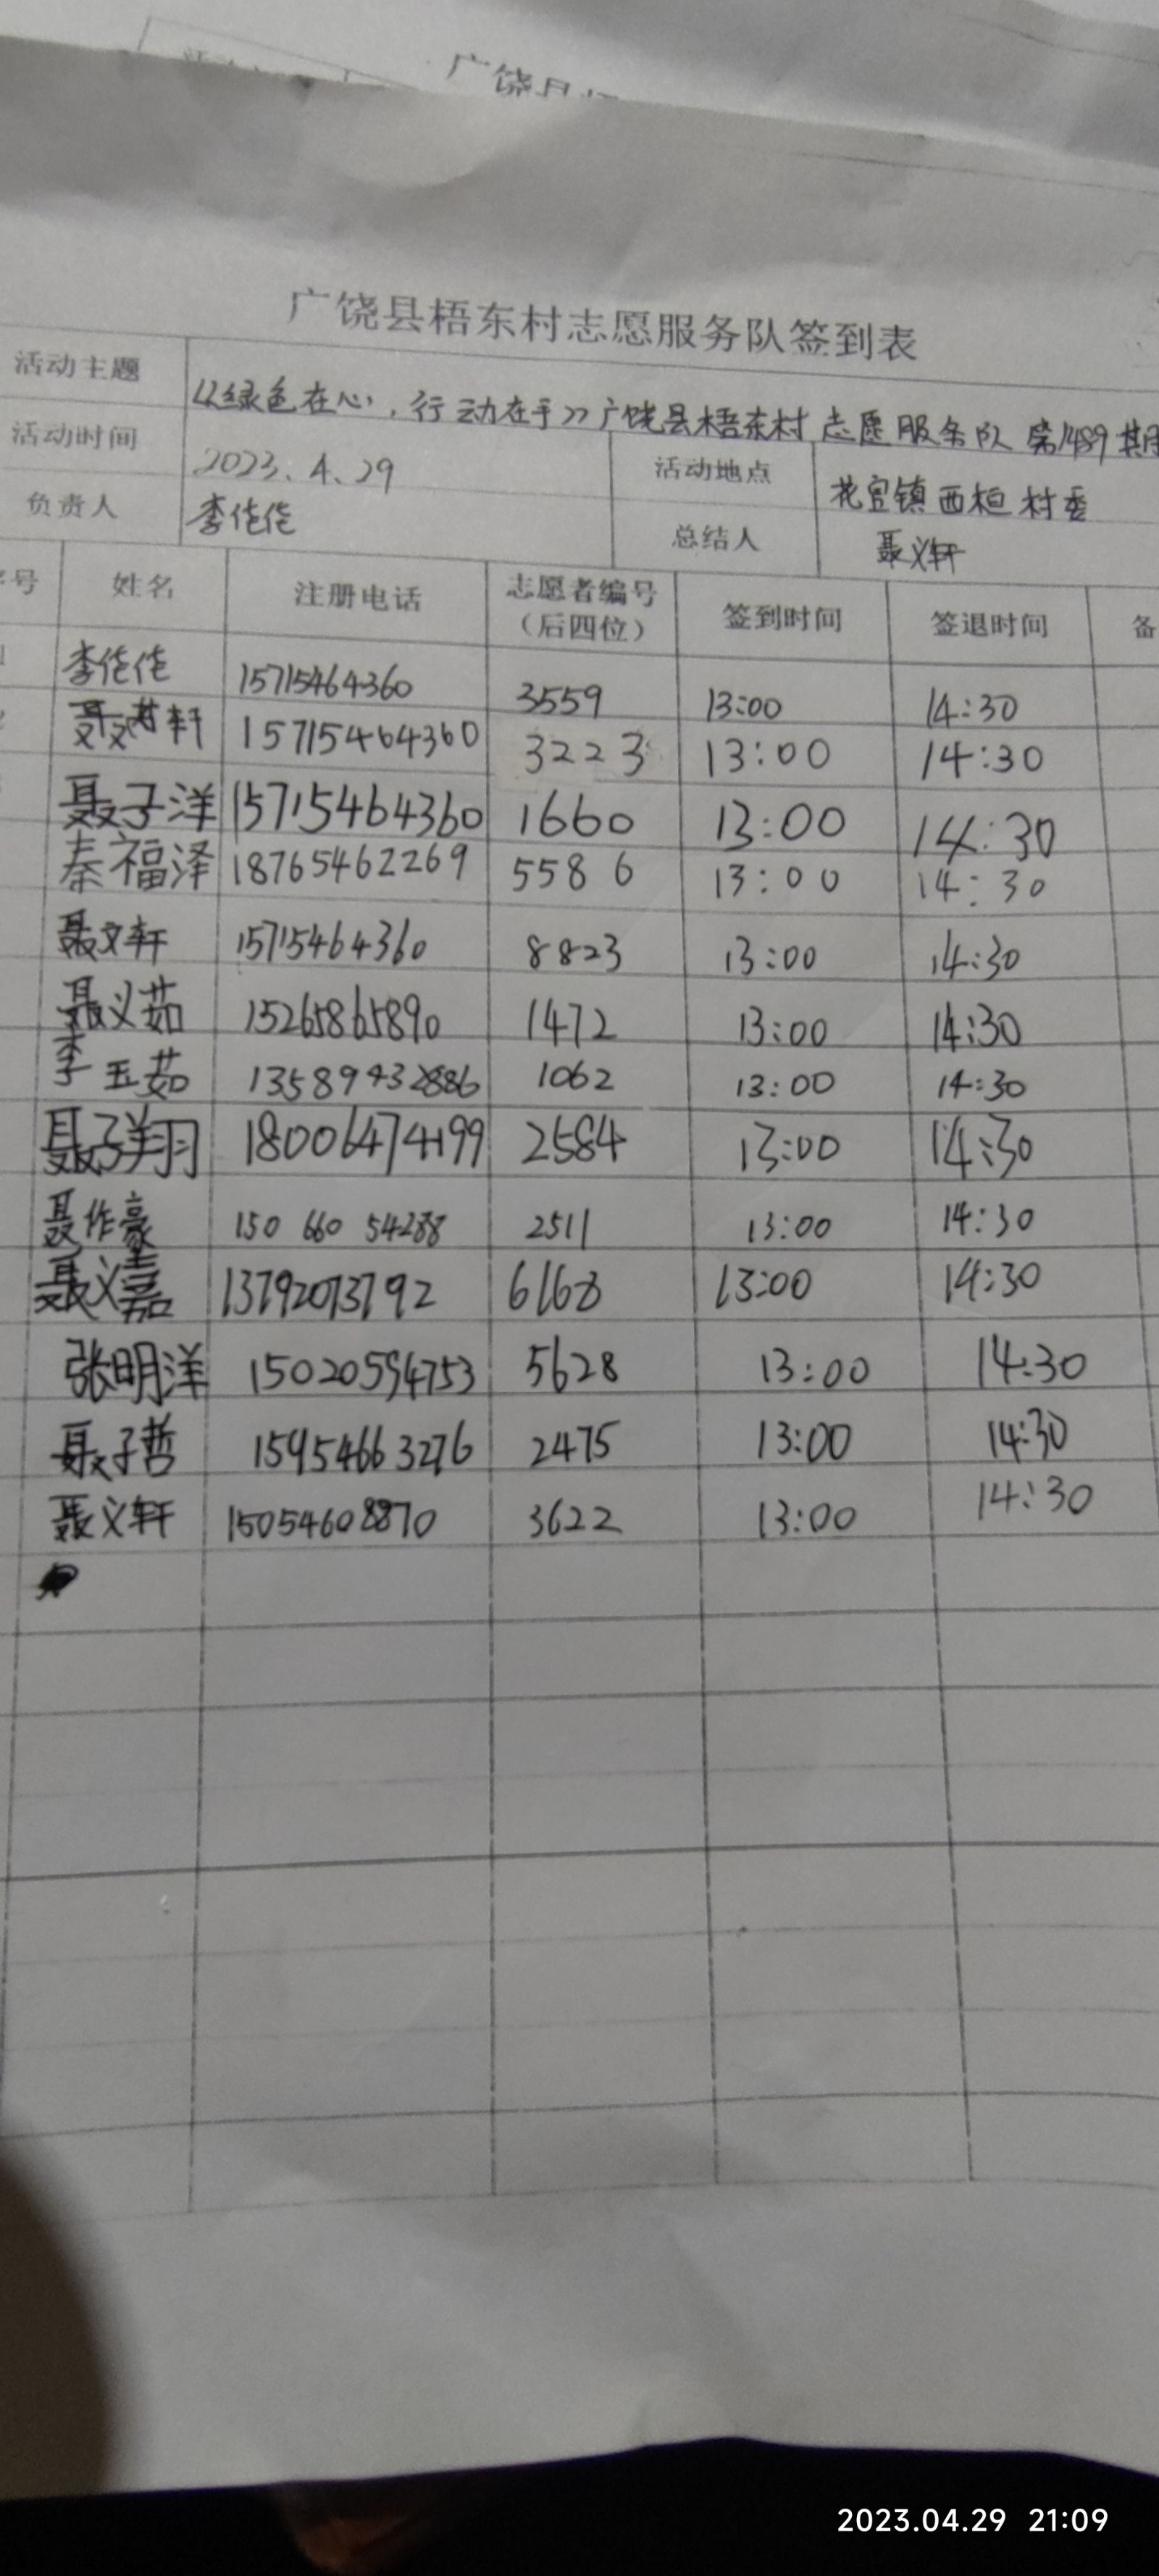 广饶县
广饶县梧东村志愿服务队签到表
活动主题 《绿色在心，行动在手》广饶县梧东村志愿服务队第1489期
活动时间 2023.4.29 活动地点 花官镇西桓村委
负责人 李佗佗 总结人 聂义轩
序号 姓名 注册电话 志愿者编号（后四位） 签到时间 签退时间 备
1 李佗佗 15715464360 3559 13:00 14:30
2 轩 15715464360 3223 13:00 14:30
聂子洋 15715464360 1660 13:00 14:30
秦福泽 18765462269 5586 13:00 14:30
聂文轩 15715464360 8823 13:00 14:30
聂义茹 15265865890 1472 13:00 14:30
李玉茹 13589432886 1062 13:00 14:30
聂子翔 18006474199 2584 13:00 14:30
聂作豪 150 660 54288 2511 13:00 14:30
聂义嘉 13792073792 6168 13:00 14:30
张明洋 15020594753 5628 13:00 14:30
聂子哲 15954663276 2475 13:00 14:30
聂义轩 15054608870 3622 13:00 14:30
2023.04.29 21:09